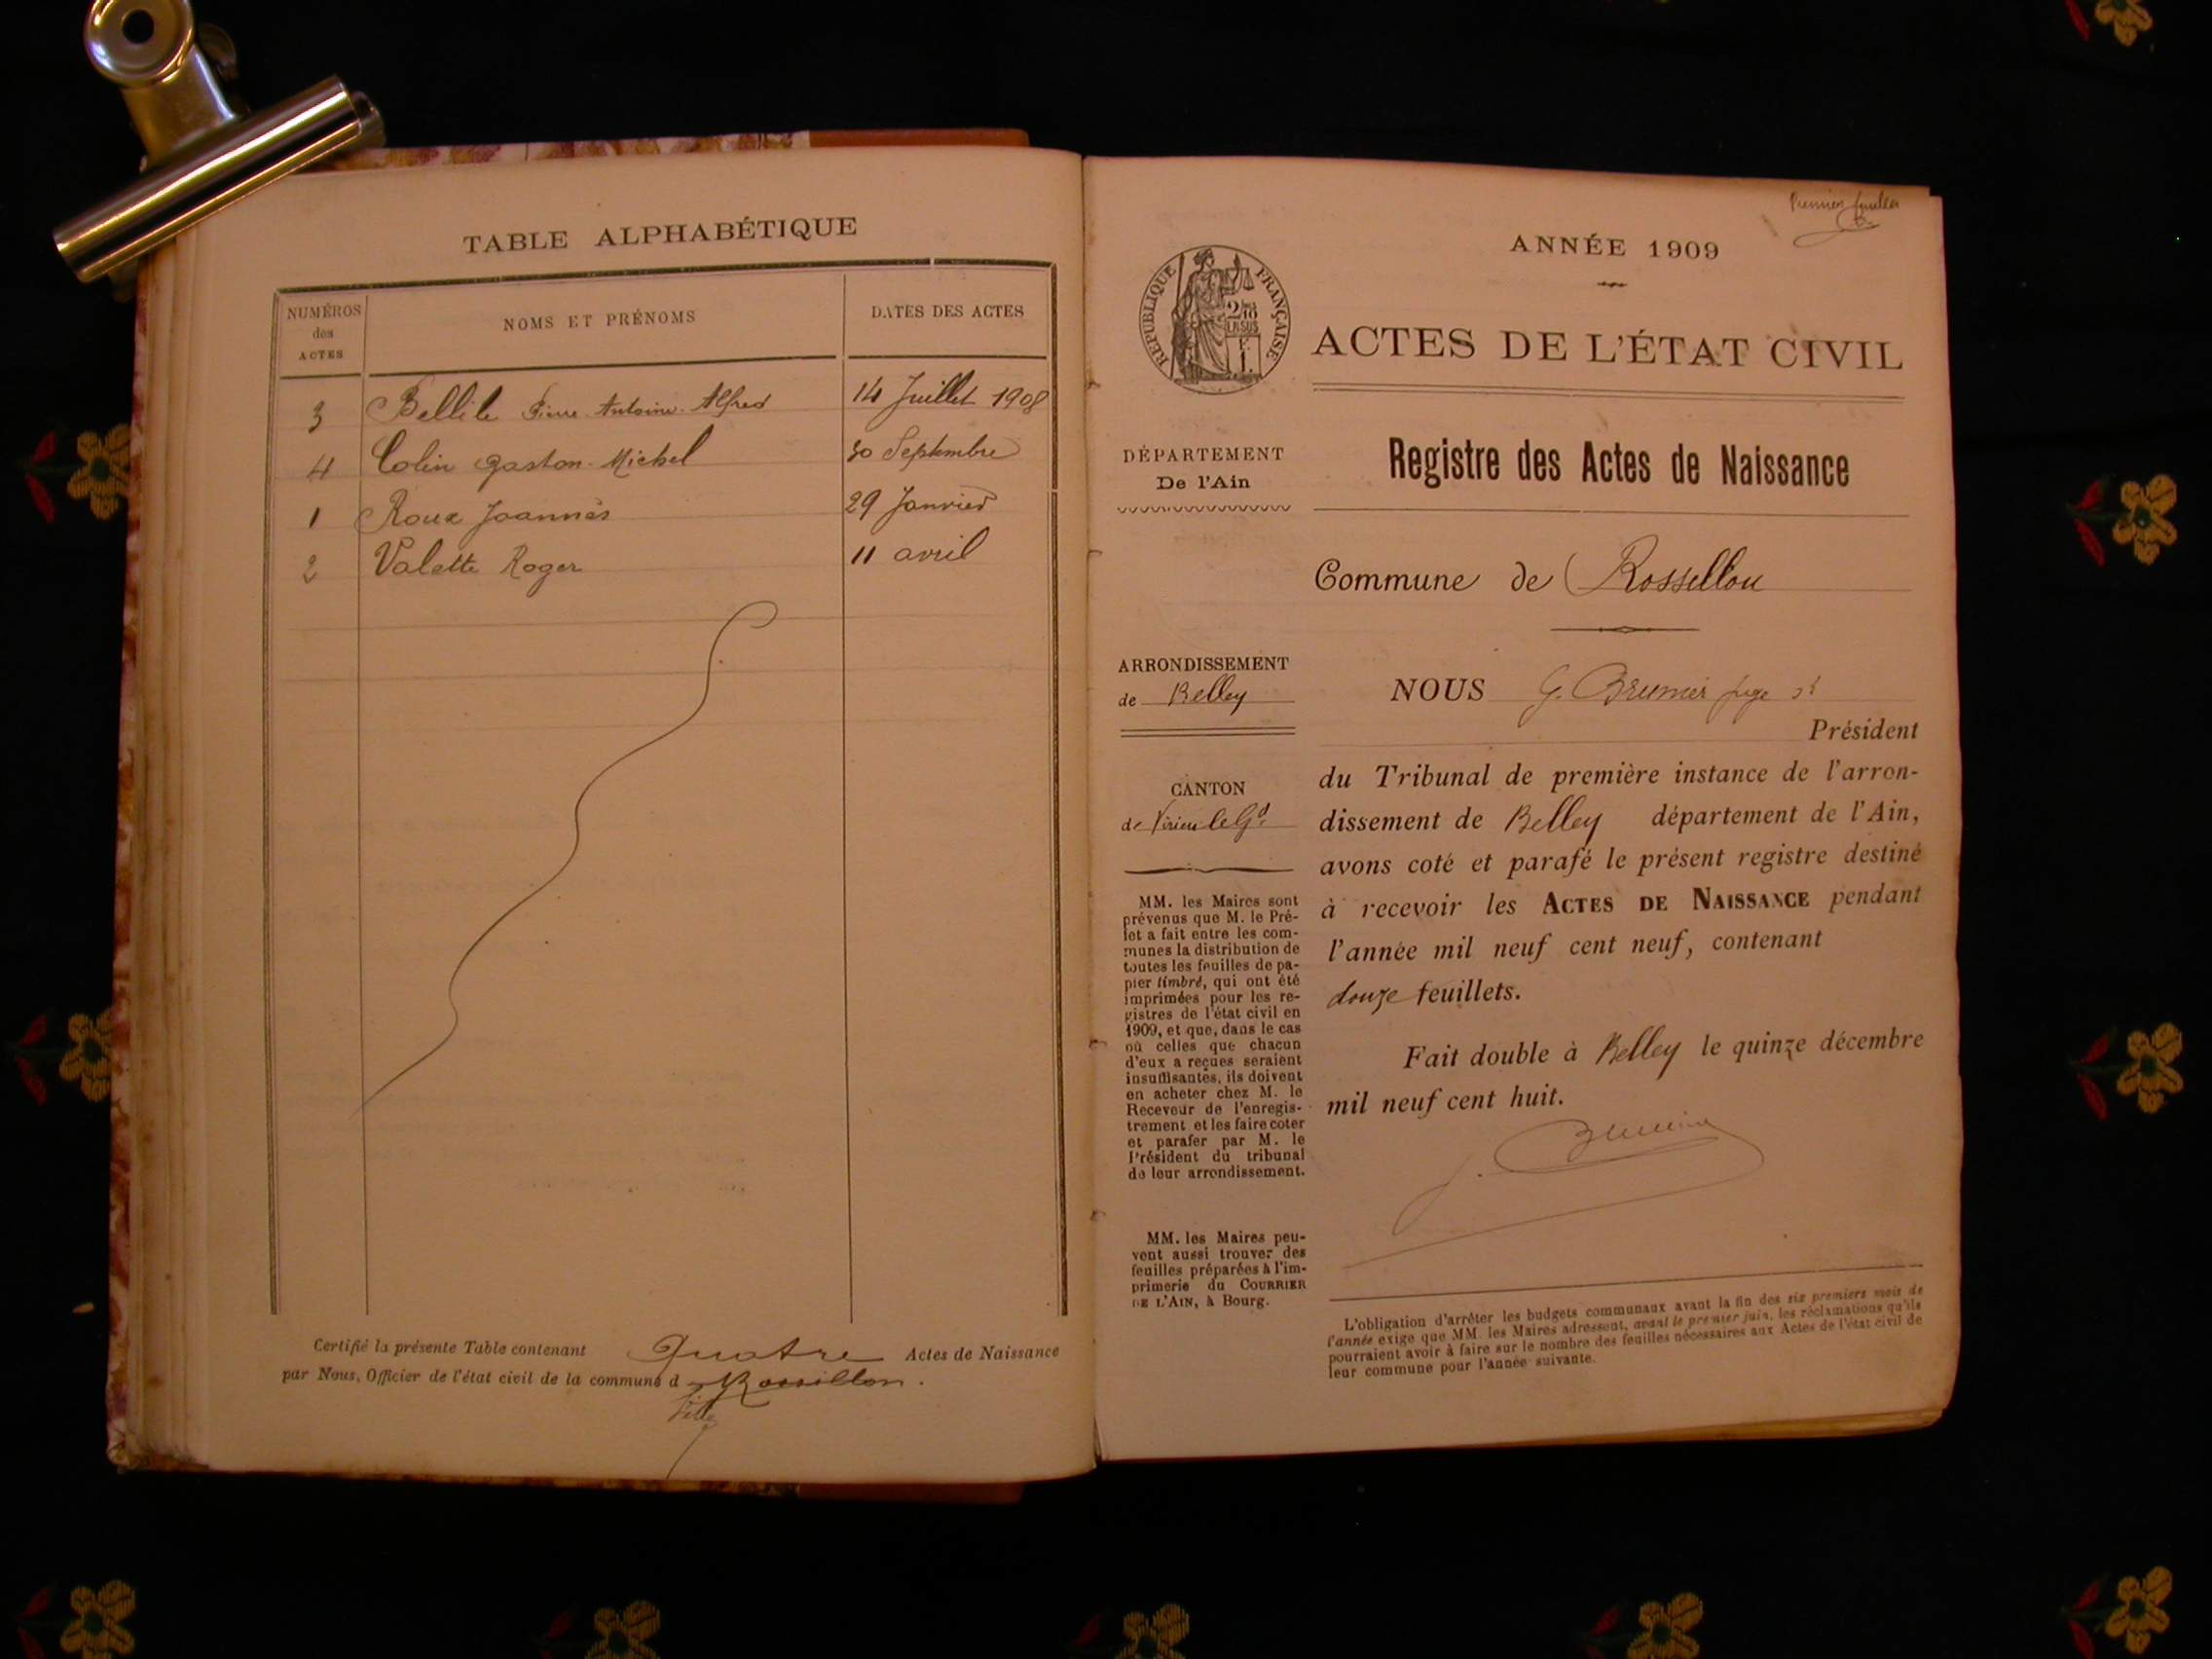 TABLE ALPHABÉTIQUE
NUMÉROS
des
ACTES
NOMS ET PRÉNOMS
DATES DES ACTES
3 Bellile Pierre Antoine Alfred 14 Juillet 1908
4 Colin Gaston Michel 30 Septembre
1 Roux Joannès 29 Janvier
2 Valette Roger 11 avril
Certifié la présente Table contenant Quatre Actes de Naissance
par Nous, Officier de l'état civil de la commune d Rossillon.
Premier feuillet
ANNÉE 1909
RÉPUBLIQUE FRANÇAISE
ACTES DE L'ÉTAT CIVIL
DÉPARTEMENT
De l'Ain
Registre des Actes de Naissance
Commune de Rossillon
ARRONDISSEMENT
de Belley
CANTON
de Virieu le Gd
MM. les Maires sont
prévenus que M. le Pré-
fet a fait entre les com-
munes la distribution de
toutes les feuilles de pa-
pier timbré, qui ont été
imprimées pour les re-
gistres de l'état civil en
1909, et que, dans le cas
où celles que chacun
d'eux a reçues seraient
insuffisantes, ils doivent
en acheter chez M. le
Receveur de l'enregis-
trement et les faire coter
et parafer par M. le
Président du tribunal
de leur arrondissement.
MM. les Maires peu-
vent aussi trouver des
feuilles préparées à l'im-
primerie du COURRIER
DE L'AIN, à Bourg.
NOUS G. Brunier juge
Président
du Tribunal de première instance de l'arron-
dissement de Belley département de l'Ain,
avons coté et parafé le présent registre destiné
à recevoir les ACTES DE NAISSANCE pendant
l'année mil neuf cent neuf, contenant
douze feuillets.
Fait double à Belley le quinze décembre
mil neuf cent huit.
L'obligation d'arrêter les budgets communaux avant la fin des six premiers mois de
l'année exige que MM. les Maires adressent, avant le premier juin, les réclamations qu'ils
pourraient avoir à faire sur le nombre des feuilles nécessaires aux Actes de l'état civil de
leur commune pour l'année suivante.